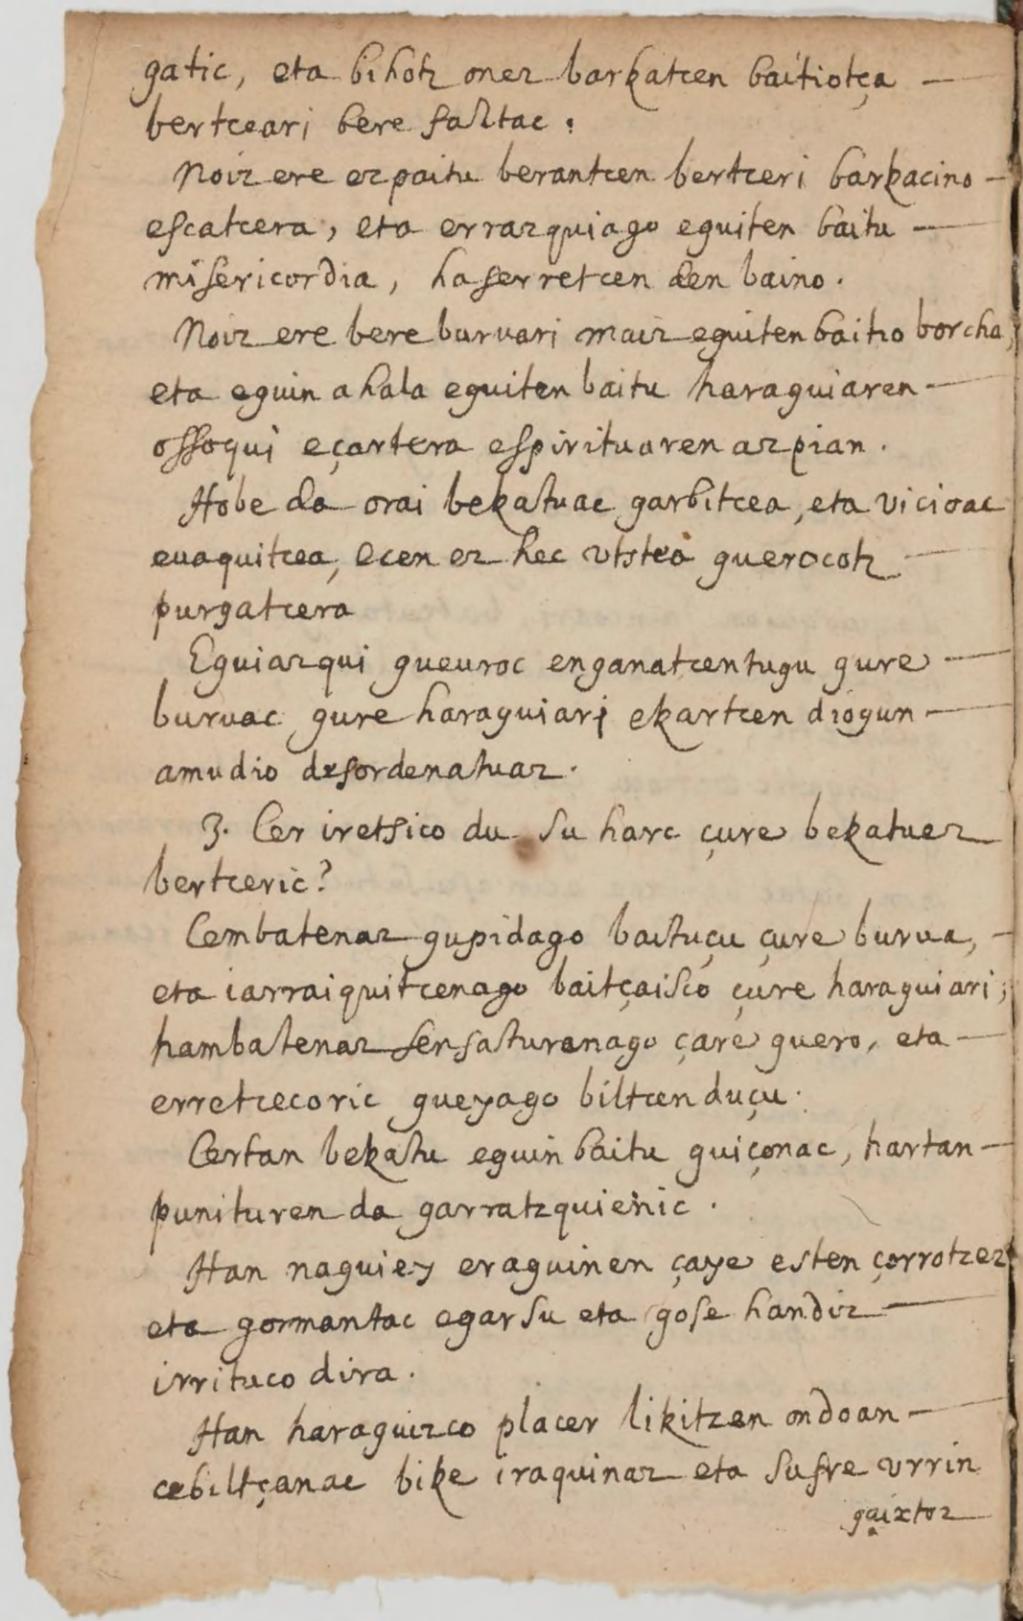 gatic, eta bihotz onez barkatcen baitiotça —
bertceari bere faltac:
Noiz ere ezpaitu berantcen bertzeri barkacino —
escatcera, eta errazquiago eguiten baitu —
misericordia, haserretcen den baino.
Noiz ere bere buruari maiz eguiten baitio borcha,
eta eguin ahala eguiten baitu haraguiaren —
ossoqui eçartera espirituaren azpian.
Hobe da orai bekatuac garbitcea, eta vicioac
euaquitcea, ecen ez hec vtstea guerocotz —
purgatcera
Eguiazqui gueuroc enganatcentugu gure —
buruac gure haraguiari ekartcen diogun —
amudio desordenatuaz.
3. Cer iretsico du su harc çure bekatuez
bertceric?
Cembatenaz gupidago baituçu çure burua, —
eta iarraiquitcenago baitçaisco çure haraguiari;
hambatenaz sensaturanago çare guero, eta —
erretcecoric gueyago biltcen duçu.
Certan bekatu eguin baitu guiçonac, hartan —
punituren da garratzquienic.
Han naguiey eraguinen çaye esten çorrotzez
eta gormantac egarsu eta gose handiz —
irrituco dira.
Han haraguizco placer likitzen ondoan —
cebiltçanac bike iraquinaz eta sufre vrrin
gaixtoz